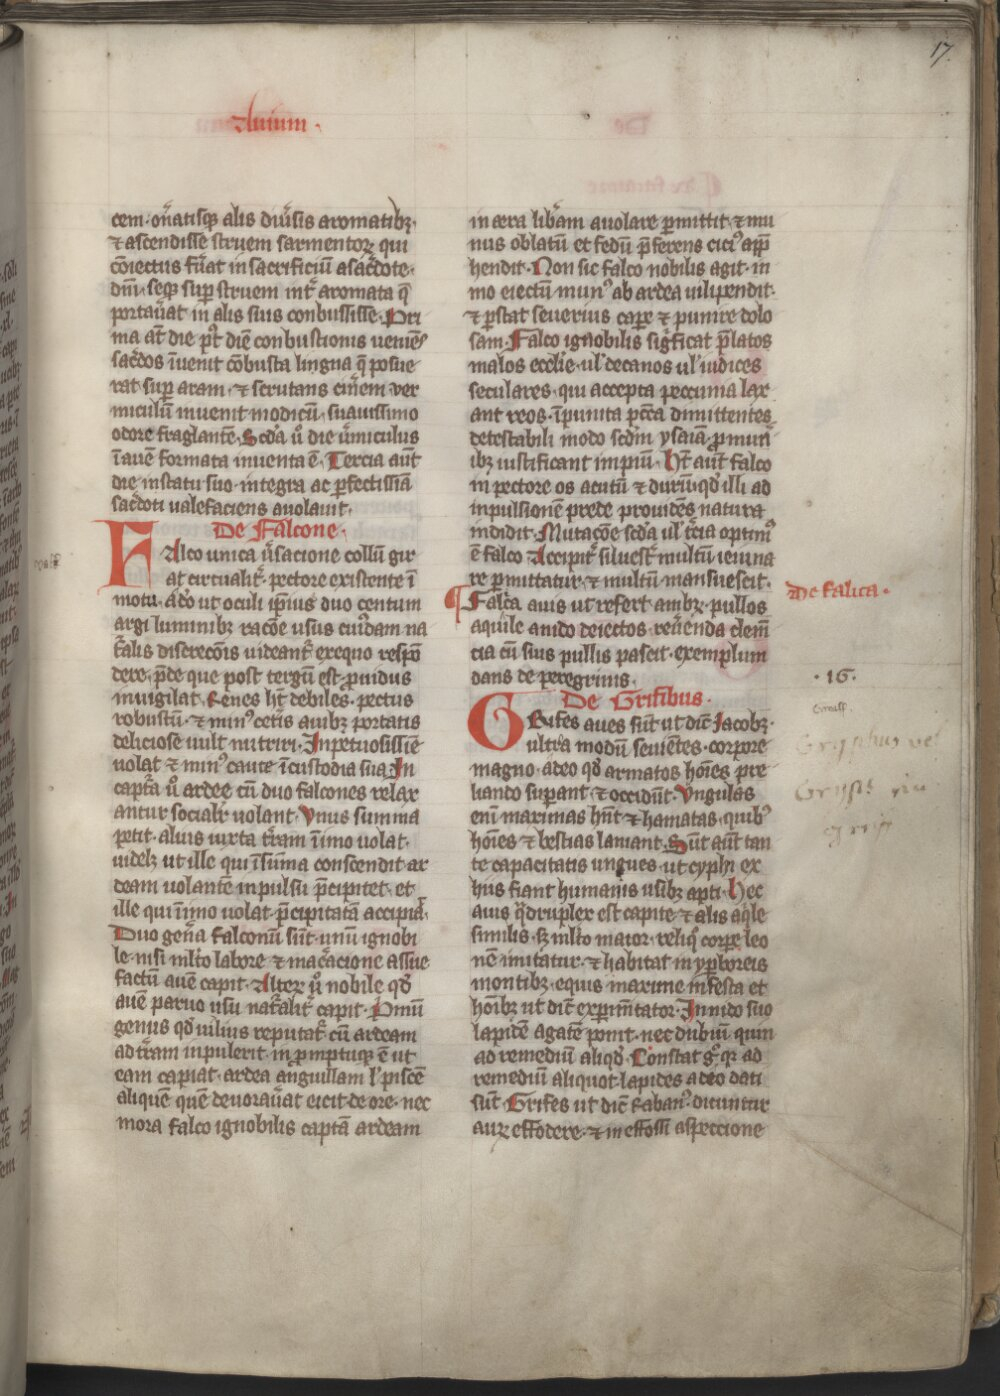 17.
Auium.
cem. on̄atisqꝫ alis diūsis aromatibꝫ.
⁊ ascendisse struem sarmentoꝝ qui
cōiectus fūat in sacrificiū a sac̄dote.
dn̄i. seqꝫ suꝑ struem int̄ aromata q̄
portau̾at in alis suis conbussisse. Pri
ma at̄ die pꝰt diē conbustionis ueniēs
sac̄dos īuenit cōbusta lingna q̄ posue
rat suꝑ aram. ⁊ scrutans cin̄em ver
miculū inuenit modicū. suauissimo
odore fraglantē. Sc̄da u̾o die u̾miculus
ī auē formata inuenta ē. Tercia aūt
die in statu suo integra ac ꝑfectissiā
sac̄doti ualefaciens auolauit.
De Falcone.
FAlco unica u̾sacione collū gir
at circualit̾. pectore existente ī
motu. adeo ut oculi ip̄ius duo centum
argi luminibꝫ racōe usus cuiꝰdam na
t̾alis discrecōis uideant̾ ex equo respō
dere. ꝓīde que post tergū est ꝓuidus
inuigilat. Renes hꝫ debiles. pectus
robustū. ⁊ minꝰ cetis auibꝫ portatis
deliciose uult nutriri. Inpetuosissīe
uolat ⁊ minꝰ caute ī custodia sua. In
capt̾a u̾o ardee cū duo falcones relax
antur socialit̾ uolant. Vnus summa
petit. alius iuxta t̾ram ī imo uolat.
uidelꝫ ut ille qui ī sūma conscendit ar
deam uolantē inpulsu p̄cipitet. et
ille qui ī imo uolat. p̄cipitatā accipiat.
Duo gen̾a falconū sūt. unū ignobi
le. nisi ml̄to labore ⁊ mac̾acione assue
factū auē capit. Alteꝝ u̾o nobile qd̾
auē paruo usu nat̾alit̾ capit. Pͥmū
genus qd̾ uilius reputat̾ cū ardeam
ad t̾ram inpulerit. in ꝓmptuqꝫ ē ut
eam capiat. ardea anguillam l̾ piscē
aliquē quē deuorau̾at eicit de ore. nec
mora falco ignobilis captā ardeam
in aera lib̾am auolare ꝑmittit. ⁊ mu
nus oblatū et fedū p̄ferens ciciꝰ app̄
hendit. Non sic falco nobilis agit. in
mo eiectū munꝰ ab ardea uilipendit.
⁊ ꝑstat seuerius caꝑe ⁊ punire dolo
sam. Falco ignobilis sig̾ficat p̄latos
malos eccl̄ie. ul̾ decanos ul̾ iudices
seculares. qui accepta peccunia lax
ant reos. īpunita pc̄ca dimittentes.
detestabili modo sc̄dm ysaiā. ꝓ muń
ibꝫ iustificant impiū. Hꝫ aūt falco
in pectore os acutū ⁊ durū. qd̾ illi ad
inpulsionē prede prouidēs natura
indidit. Mutacōe sc̄da ul̾ t̾cia optimꝰ
ē falco. Accipit̾ siluest̾ multū ieiuna
re ꝑmittatur. ⁊ multū mansuescit.
De falica.
¶ Falica auis ut refert ambꝫ. pullos
aquile a nido deiectos. reu̾enda clem̄
cia cū suis pullis pascit. exemplum
dans de peregrinis.
.16.
De Grifibus.
GRifes aues sūt ut dic̄t Jacobꝫ.
ultra modū seuiētes. corpore
magno. adeo qd̾ armatos hoīes pre
liando suꝑant. ⁊ occidūt. Vngulas
enī maximas hn̄t ⁊ hamatas. quibꝰ
hoīes ⁊ bestias laniant. Sūt aūt tan
te capacitatis ungues. ut cyphi ex
hiis fiant humanis usibꝫ apti. Hec
auis q̾druplex est capite ⁊ alis aq̾le
similis. sꝫ ml̄to maior. reliqͦ corpe leo
nē imitatur. ⁊ habitat in yꝑboreis
montibꝫ. equis maxime infesta et
hoībꝫ ut dic̄t expim̄tator. In nido suo
lapidē agatē ponit. nec dubiū quin
ad remediū aliqd̾. Constat gͦ. qꝛ ad
remediū aliquot lapides adeo dati
sūt. Grifes ut dic̄t Rabanꝰ. dicuntur
auꝝ effodere. ⁊ in effossi aspeccione